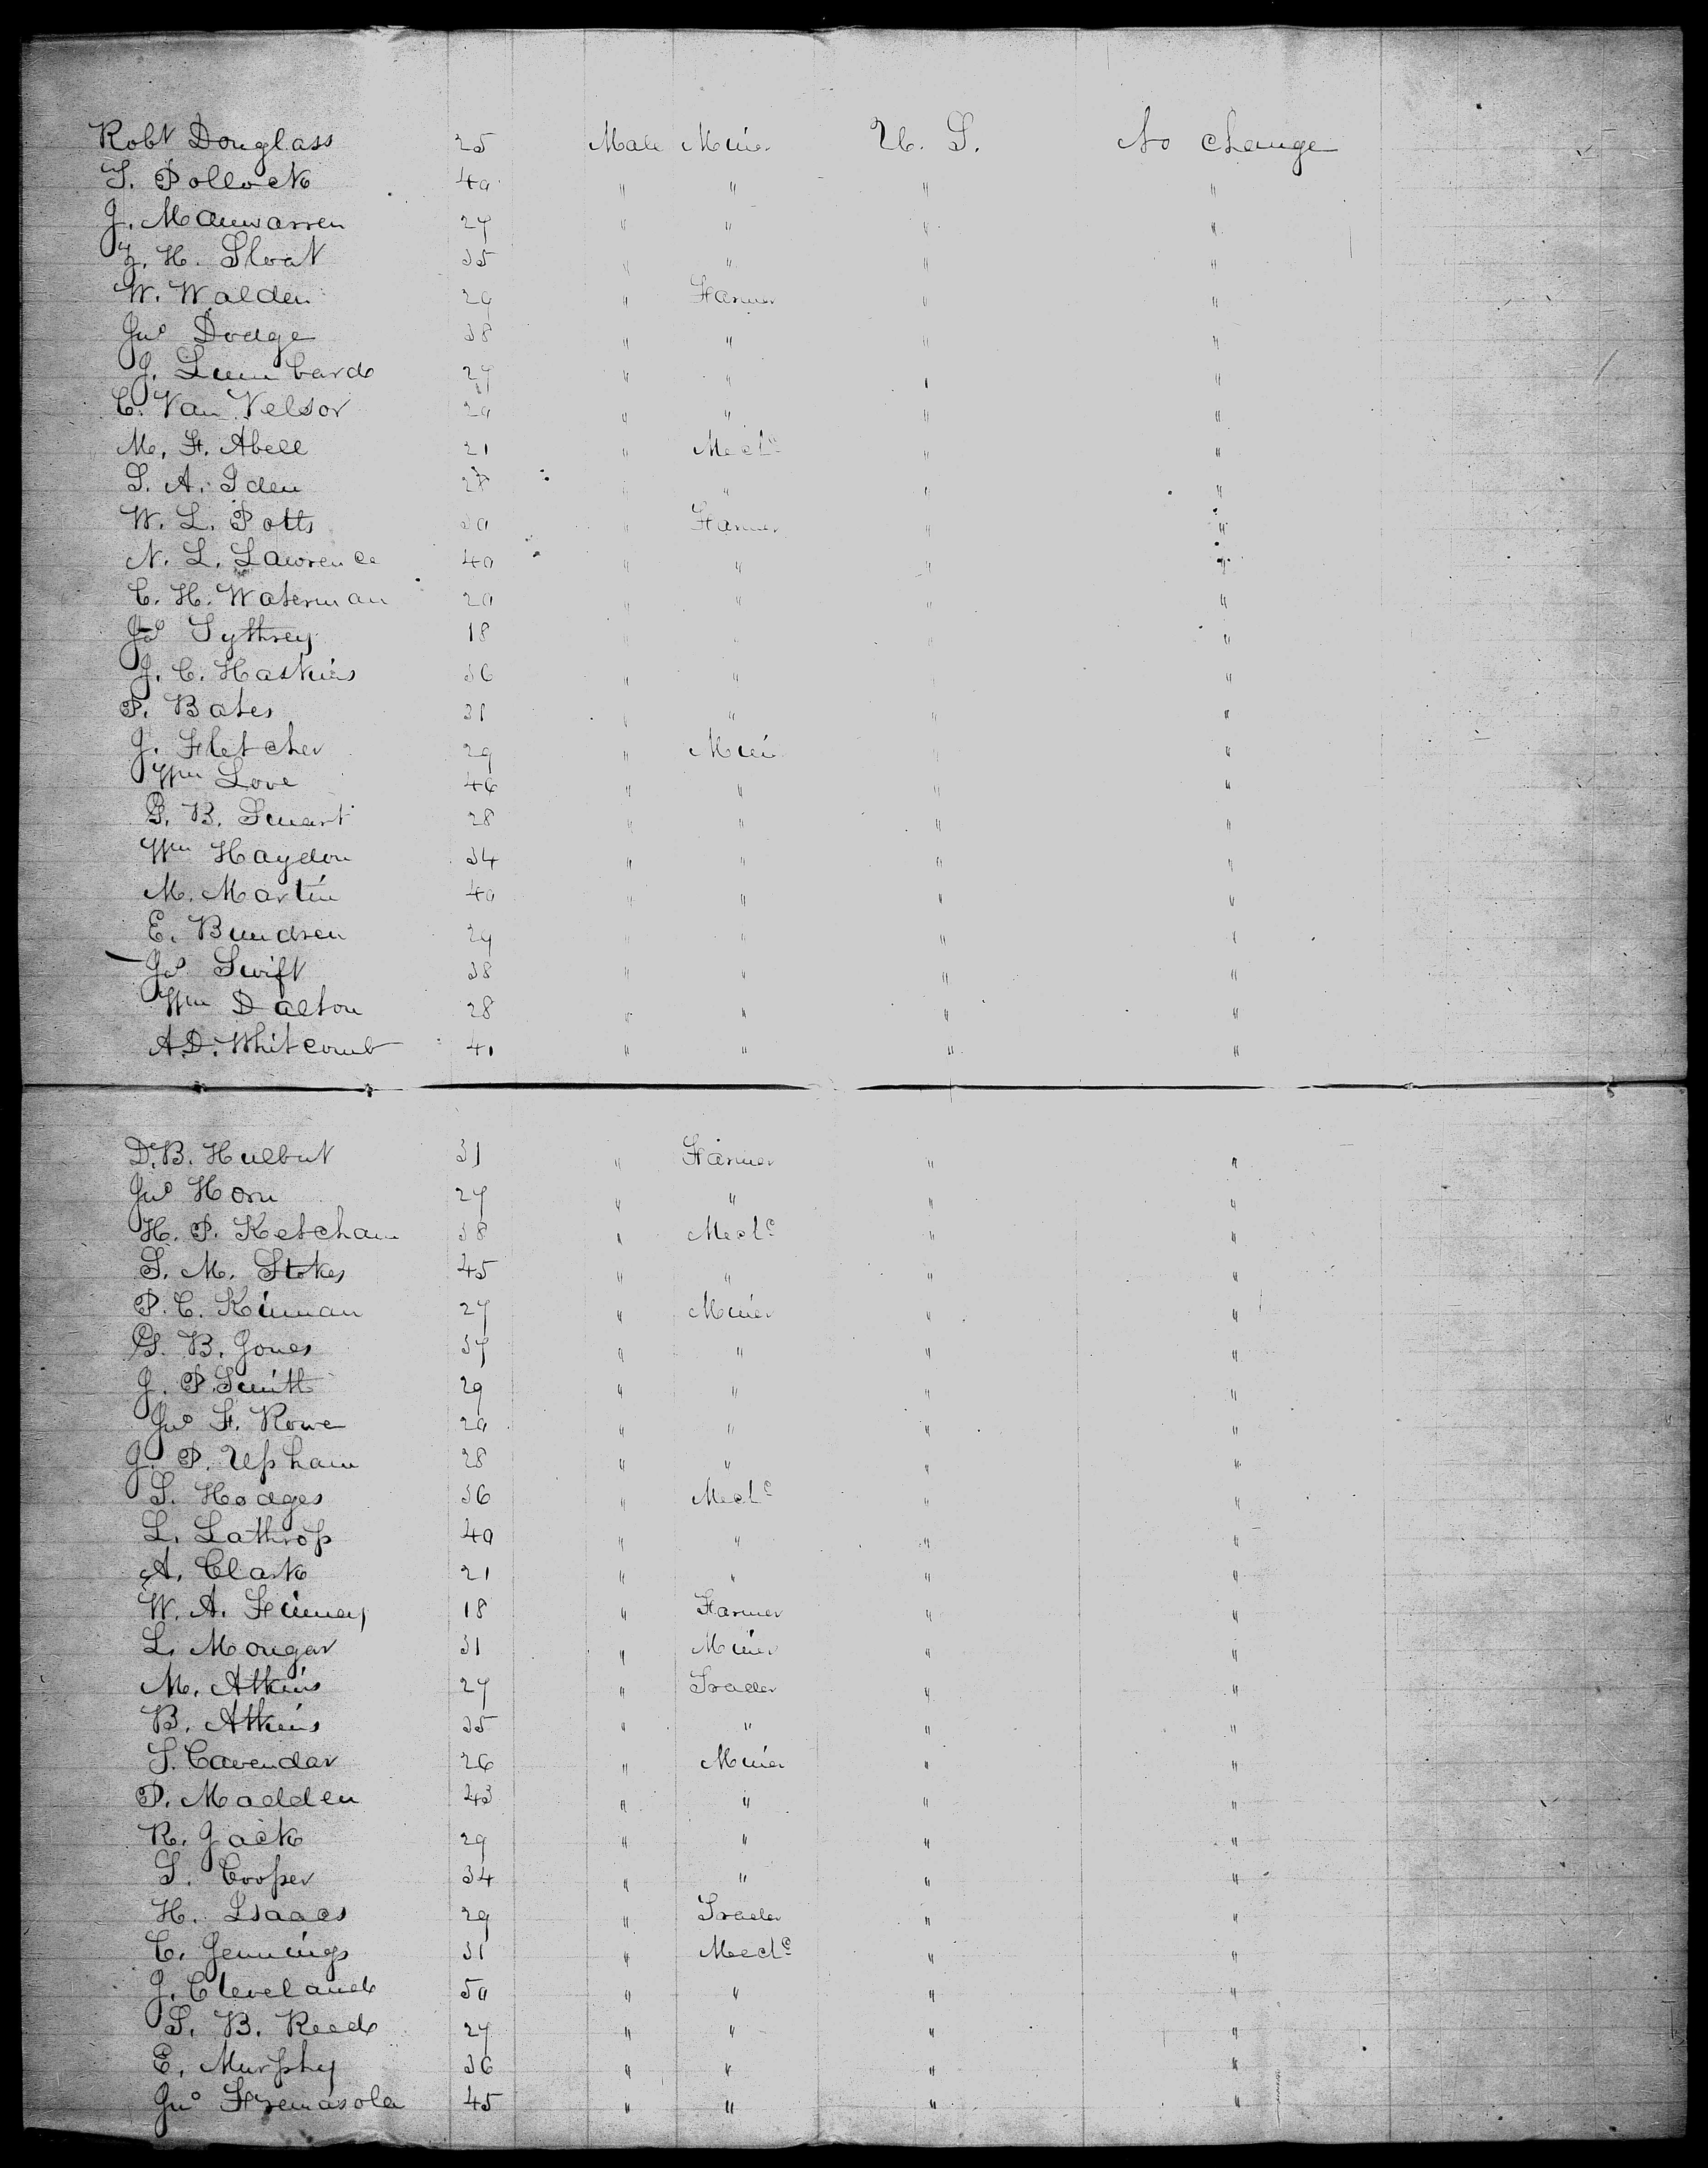 Robt Douglass 25 Male Miner U. S. No change
S. Pollock 40 " " " "
J. Manwarren 27 " " " "
Z. H. Sloat 35 " " " "
W. Walden 29 " Farmer " "
Jno Dodge 38 " " " "
J. Lumbard 27 " " " "
C. Van Velsor 20 " " " "
M. F. Abell 21 " Mechc " "
S. A. Iden 28 " " " "
W. L. Potts 30 " Farmer " "
N. L. Lawrence 40 " " " "
C. H. Waterman 20 " " " "
Jas Sythrey 18 " " " "
J. C. Haskins 36 " " " "
P. Bates 31 " " " "
J. Fletcher 29 " Miner " "
Wm Love 46 " " " "
G. B. Smart 28 " " " "
Wm Haydon 34 " " " "
M. Martin 40 " " " "
E. Bundren 29 " " " "
Jas Swift 38 " " " "
Wm Dalton 28 " " " "
A.D. Whitcomb 41 " " " "
D.B. Hulbut 31 " Farmer " "
Jno Horn 27 " " " "
H. P. Ketcham 38 " Mechc " "
S. M. Stokes 45 " " " "
P. C. Kinman 27 " Miner " "
G. B. Jones 37 " " " "
J. P. Smith 29 " " " "
Jno F. Rowe 20 " " " "
J. P. Upham 28 " " " "
S. Hodges 36 " Mechc " "
L. Lathrop 40 " " " "
A. Clark 21 " " " "
W. A. Finney 18 " Farmer " "
L. Mougar 31 " Miner " "
M. Atkins 27 " Trader " "
B. Atkins 35 " " " "
S. Cavendar 26 " Miner " "
P. Madden 43 " " " "
R. Jack 29 " " " "
S. Cooper 34 " " " "
H. Isaacs 29 " Trader " "
C. Jennings 31 " Mechc " "
J. Cleveland 50 " " " "
S. B. Reed 27 " " " "
E. Murphy 36 " " " "
Jno Fremasola 45 " " " "